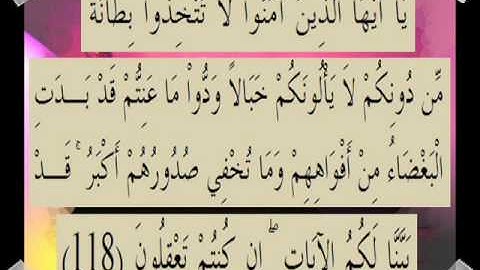 يَا أَيُّهَا الَّذِينَ آمَنُواْ لاَ تَتَّخِذُواْ بِطَانَةً
مِّن دُونِكُمْ لاَ يَأْلُونَكُمْ خَبَالاً وَدُّواْ مَا عَنِتُّمْ قَدْ بَـــدَتِ
الْبَغْضَاءُ مِنْ أَفْوَاهِهِمْ وَمَا تُخْفِي صُدُورُهُمْ أَكْبَرُ ۚ قَـــدْ
بَيَّنَّا لَكُمُ الآيَاتِ ۖ إِن كُنتُمْ تَعْقِلُونَ (118)